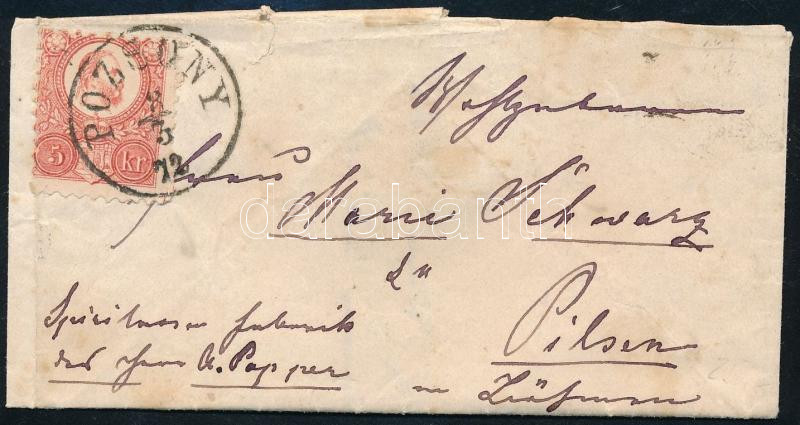 POZSONY
8/5
72
5 kr
Wohlgeboren
Frau
Marie Schwarz
in
Spirituosen Fabrik
des Herrn A. Popper
Pilsen
in Böhmen
darabanth